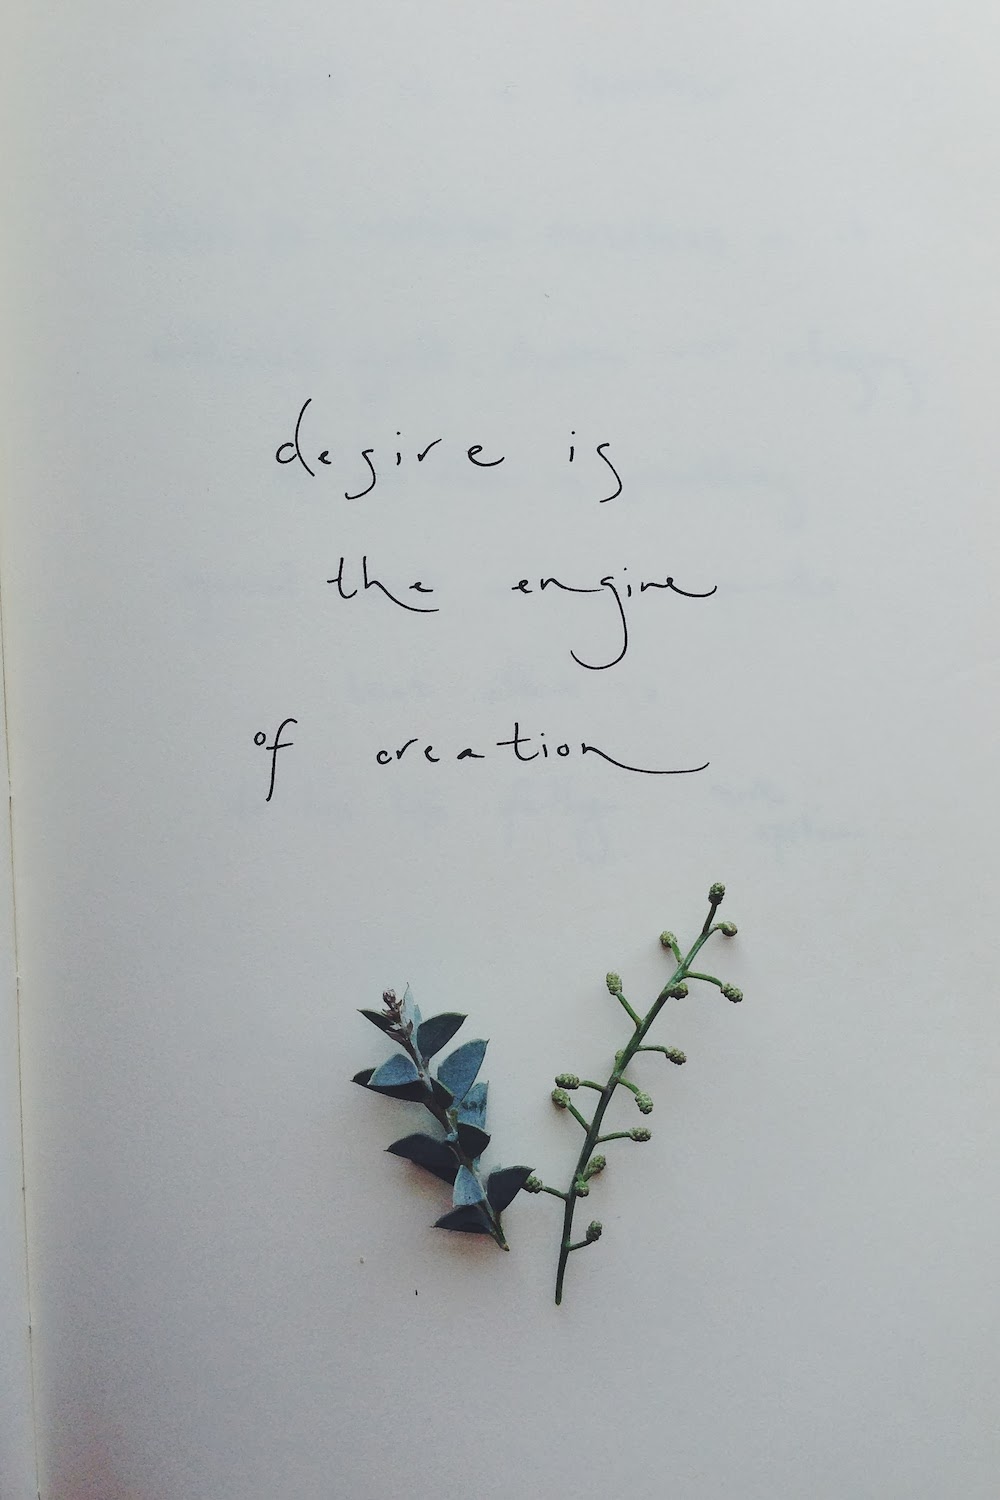 desire is
the engine
of creation